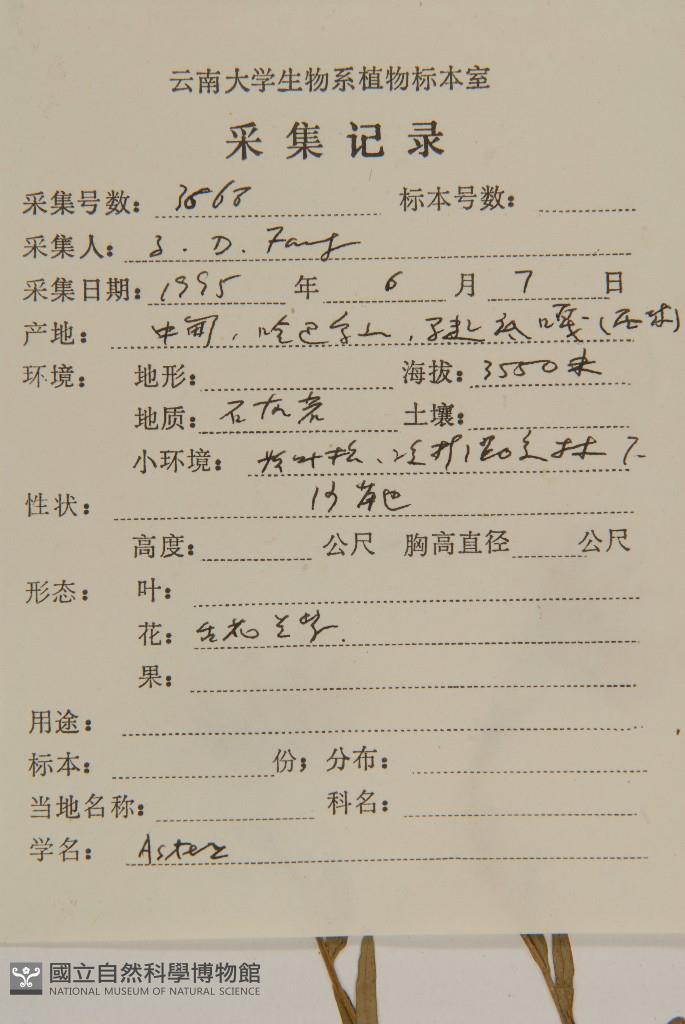 云南大学生物系植物标本室
采集记录
采集号数: 3568 标本号数:
采集人: Z. D. Fang
采集日期: 1995 年 6 月 7 日
产地: 中甸, 哈巴雪山,
环境: 地形: 海拔: 3550米
地质: 石灰岩 土壤:
小环境: 林下
性状:
高度: 公尺 胸高直径 公尺
形态: 叶:
花: 舌花兰紫.
果:
用途:
标本: 份; 分布:
当地名称: 科名:
学名: Aster
國立自然科學博物館
NATIONAL MUSEUM OF NATURAL SCIENCE